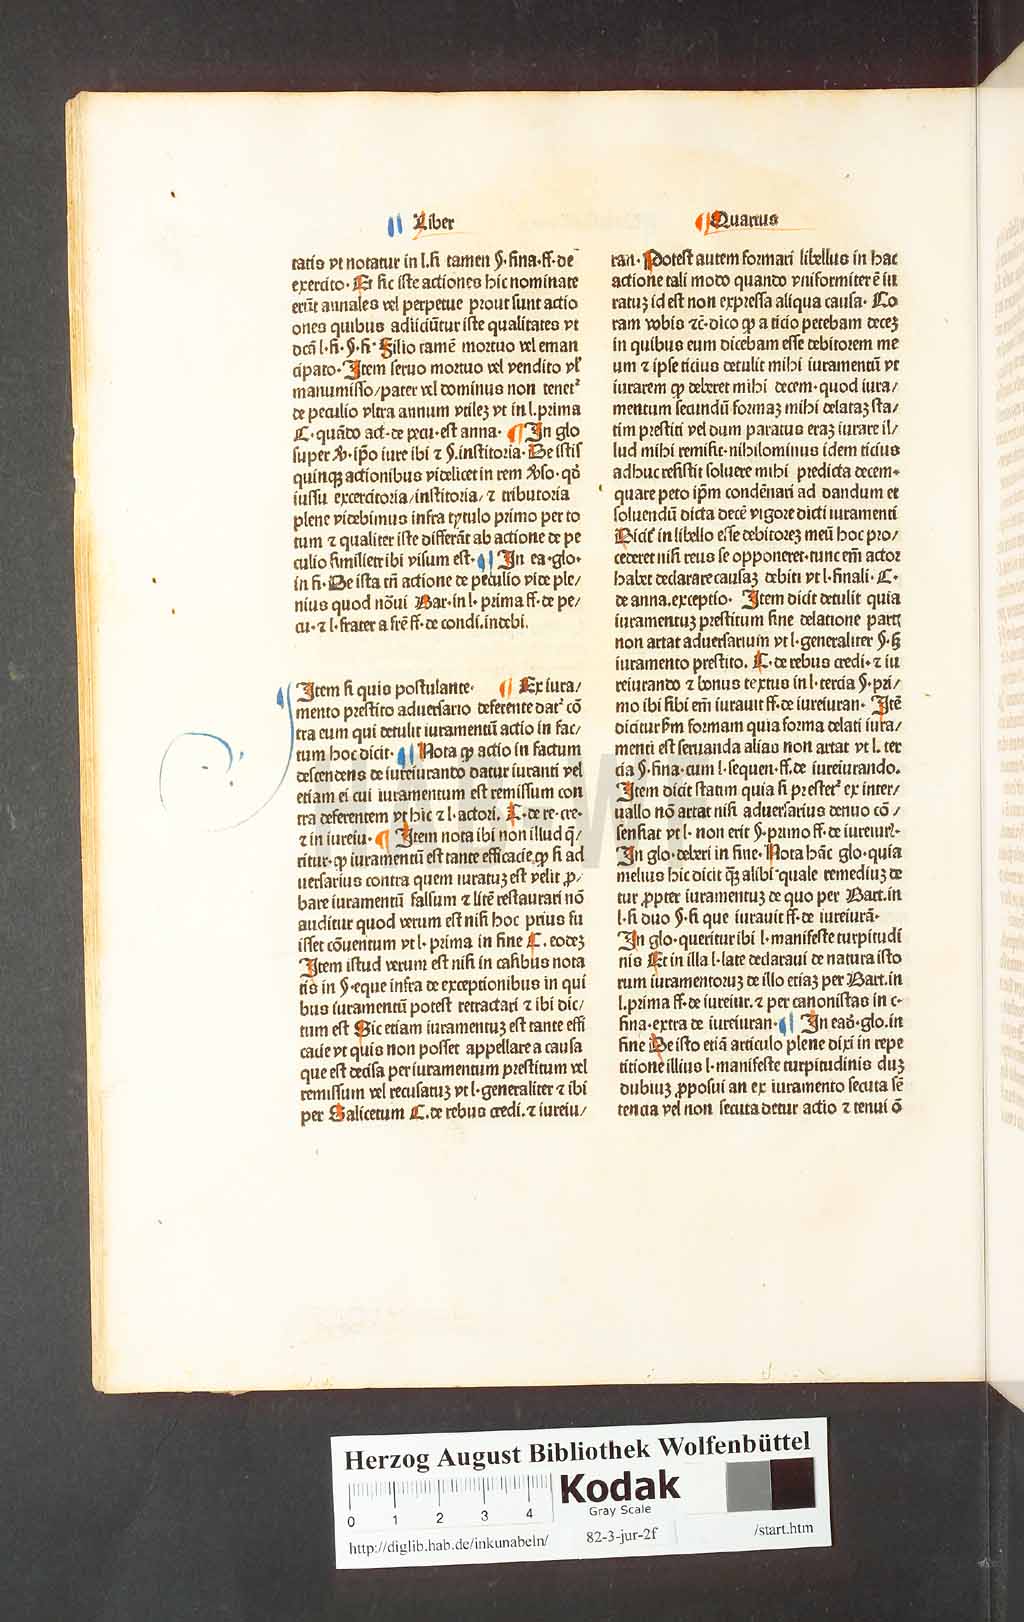 Liber
Quartus
tatis vt notatur in l. si tamen §. fina. ff. de
exercito. Et sic iste actiones hic nominate
erūt annales vel perpetue prout sunt actio
ones quibus adiiciūtur iste qualitates vt
dcā l. si. §. si. Filio tamē mortuo vel eman
cipato. Item seruo mortuo vel vendito vł
manumisso/ pater vel dominus non tenetᷣ
de peculio vltra annum vtileꝫ vt in l. prima
C. quādo act. de pecu. est anna. ¶ In glo
super ꝟ. ipō iure ibi ⁊ §. institoria. De istis
quinqꝫ actionibus videlicet in rem ꝟso. qđ
iussu exercitoria/ institoria/ ⁊ tributoria
plene videbimus infra tytulo primo per to
tum ⁊ qualiter iste differāt ab actione de pe
culio similiter ibi visum est. ¶ In ea. glo.
in fi. De ista tñ actione de peculio vide ple/
nius quod nōui Bar. in l. prima ff. de pe/
cu. ⁊ l. frater a frē ff. de condi. indebi.
Item si quis postulante. ¶ Ex iura/
mento prestito aduersario deferente datᷣ cō
tra eum qui detulit iuramentū actio in fac/
tum hoc dicit. ¶ Nota ꝙ actio in factum
descendens de iureiurando datur iuranti vel
etiam ei cui iuramentum est remissum con
tra deferentem vt hic ⁊ l. actori. C. de re. cre.
⁊ in iureiu. ¶ Item nota ibi non illud q̄/
ritur. ꝙ iuramentū est tante efficacie ꝙ si ad
uersarius contra quem iuratuꝫ est velit ꝓ/
bare iuramentū falsum ⁊ litē restaurari nō
auditur quod verum est nisi hoc prius fu
isset cōuentum vt l. prima in fine C. eodeꝫ
Item istud verum est nisi in casibus nota
tis in §. eque infra de exceptionibus in qui
bus iuramentū potest retractari ⁊ ibi dic/
tum est Sic etiam iuramentuꝫ est tante effi
cacie vt quis non posset appellare a causa
que est decisa per iuramentum prestitum vel
remissum vel recusatuꝫ vt l. generaliter ⁊ ibi
per Salicetum C. de rebus credi. ⁊ iureiu/
ran. Potest autem formari libellus in hac
actione tali modo quando vniformiter ē iu
ratuꝫ id est non expressa aliqua causa. Co
ram vobis ⁊c̄. dico ꝙ a ticio petebam deceꝫ
in quibus eum dicebam esse debitorem me
um ⁊ ipse ticius detulit mihi iuramentū vt
iurarem ꝙ deberet mihi decem. quod iura/
mentum secundū formaꝫ mihi delataꝫ sta/
tim prestiti vel dum paratus eraꝫ iurare il/
lud mihi remisit. nihilominus idem ticius
adhuc resistit soluere mihi predicta decem.
quare peto ip̄m condēnari ad dandum et
soluendū dicta decē vigore dicti iuramenti
Dicit in libello esse debitoreꝫ meū hoc pro/
cederet nisi reus se opponeret. tunc em̄ actor
habet declarare causaꝫ debiti vt l. finali. C.
de anna. exceptio. Item dicit detulit quia
iuramentuꝫ prestitum sine delatione partꝭ
non artat aduersarium vt l. generaliter §. si
iuramento prestito. C. de rebus credi. ⁊ iu
reiurando ⁊ bonus textus in l. tercia §. pri/
mo ibi sibi em̄ iurauit ff. de iureiuran. Itē
dicitur ẜm formam quia forma delati iura/
menti est seruanda alias non artat vt l. ter
cia §. fina. cum l. sequen. ff. de iureiurando.
Item dicit statim quia si presteᷣt ex inter/
uallo nō artat nisi aduersarius denuo cō/
sentiat vt l. non erit §. primo ff. de iureiur.
In glo. deberi in fine. Nota hāc glo. quia
melius hic dicit qꝫ alibi quale remediuꝫ de
tur ꝓpter iuramentuꝫ de quo per Bart. in
l. si duo §. si que iurauit ff. de iureiurā.
In glo. queritur ibi l. manifeste turpitudi
nis Et in illa l. late declaraui de natura isto
rum iuramentoruꝫ de illo etiaꝫ per Bart. in
l. prima ff. de iureiur. ⁊ per canonistas in c.
fina. extra de iureiuran. ¶ In ead. glo. in
fine De isto etiā articulo plene dixi in repe
titione illius l. manifeste turpitudinis duꝫ
dubiuꝫ ꝓposui an ex iuramento secuta sē
tentia vel non secuta detur actio ⁊ tenui ō
HAB-WF
Herzog August Bibliothek Wolfenbüttel
0 1 2 3 4
Kodak
Gray Scale
http://diglib.hab.de/inkunabeln/ 82-3-jur-2f /start.htm